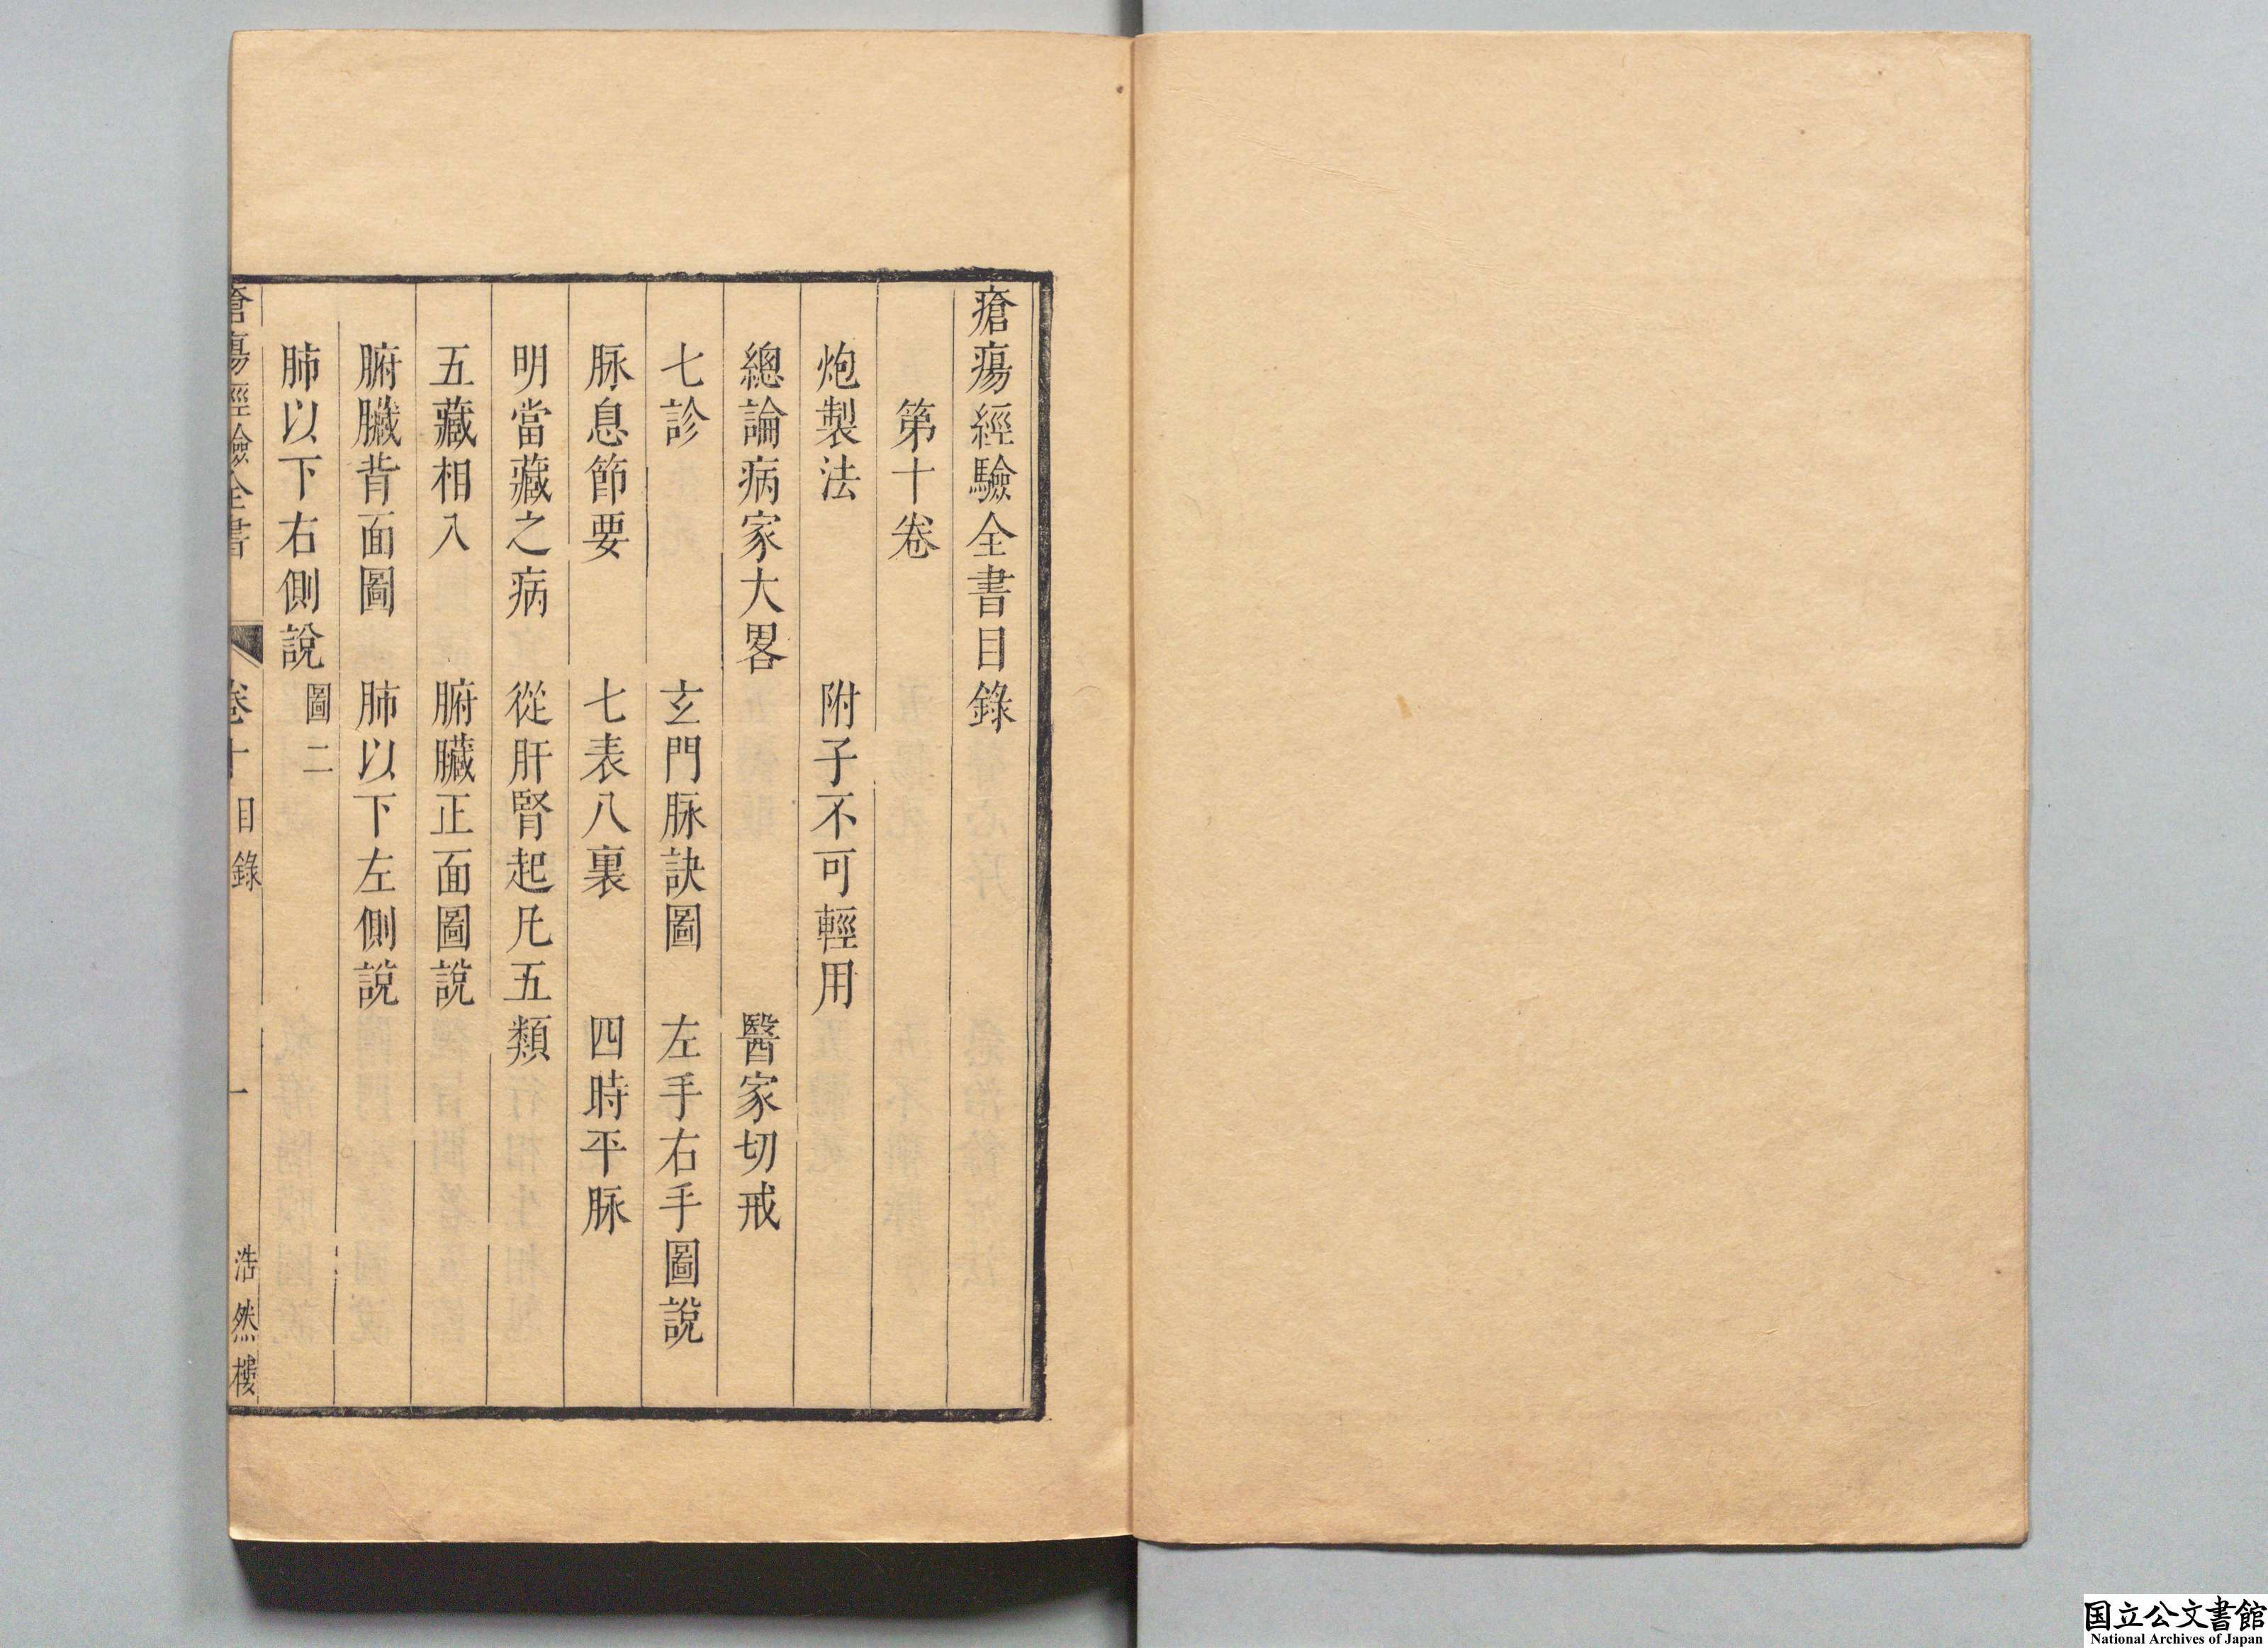 瘡瘍經驗全書目錄
第十卷
炮製法　附子不可輕用
總論病家大畧　醫家切戒
七診　玄門脉訣圖　左手右手圖說
脉息節要　七表八裏　四時平脉
明當藏之病　從肝腎起凡五類
五藏相入　腑臟正面圖說
腑臟背面圖　肺以下左側說
肺以下右側說　圖二
瘡瘍經驗全書　卷十　目錄　一　浩然樓
国立公文書館
National Archives of Japan